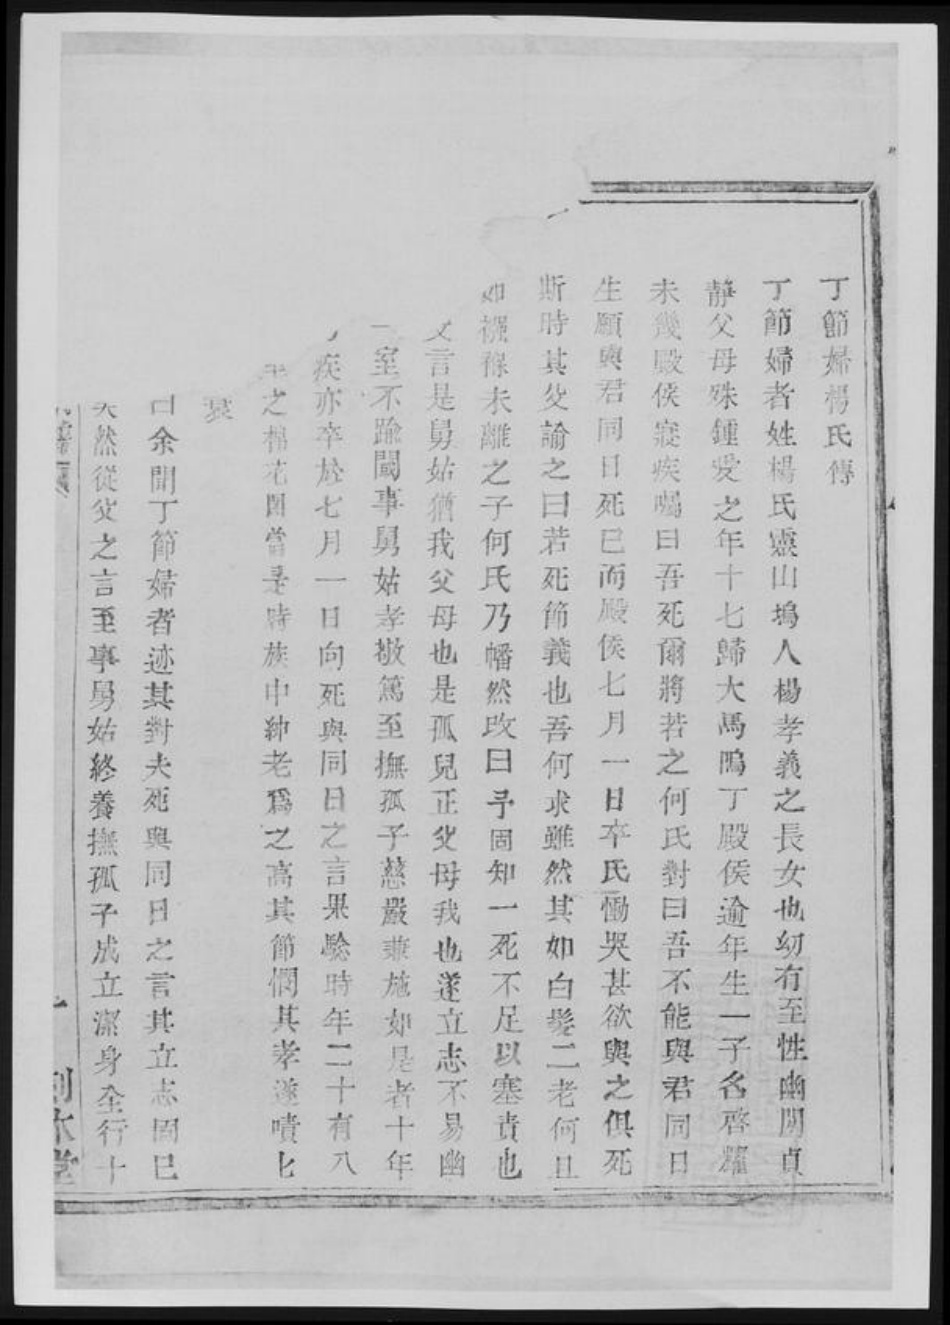 丁節婦楊氏傳
丁節婦者姓楊氏靈山塢人楊孝義之長女也幼有至性幽閒貞
靜父母殊鍾愛之年十七歸大馬隝丁殿侯逾年生一子名啓耀
未幾殿侯寢疾囑曰吾死爾將若之何氏對曰吾不能與君同日
生願與君同日死已而殿侯七月一日卒氏慟哭甚欲與之俱死
斯時其父諭之曰若死節義也吾何求雖然其如白髮二老何且
如襁褓未離之子何氏乃幡然改曰予固知一死不足以塞責也
父言是舅姑猶我父母也是孤兒正父母我也遂立志不易幽
室不踰閫事舅姑孝敬篤至撫孤子慈嚴兼施如是者十年
疾亦卒於七月一日向死與同日之言果驗時年二十有八
之棉花園當是時族中紳老爲之高其節憫其孝遂嘖七
裳
曰余聞丁節婦者迹其對夫死與同日之言其立志固已
矣然從父之言至事舅姑終養撫孤子成立潔身全行十